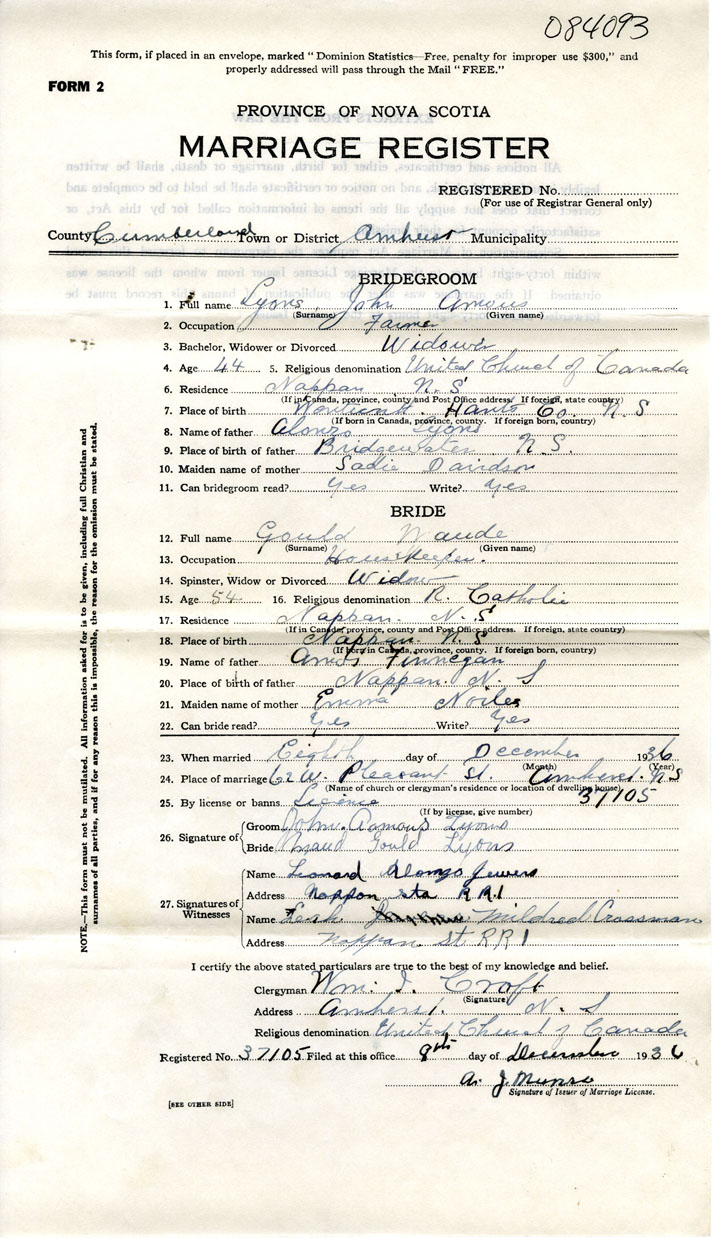 084093
This form, if placed in an envelope, marked "Dominion Statistics—Free, penalty for improper use $300," and
properly addressed will pass through the Mail "FREE."
FORM 2
PROVINCE OF NOVA SCOTIA
MARRIAGE REGISTER
REGISTERED No.
(For use of Registrar General only)
County Cumberland Town or District Amherst Municipality
BRIDEGROOM
1. Full name Lyons John Amous
(Surname) (Given name)
2. Occupation Farmer
3. Bachelor, Widower or Divorced Widower
4. Age 44 5. Religious denomination United Church of Canada
6. Residence Nappan N. S
(If in Canada, province, county and Post Office address. If foreign, state country)
7. Place of birth Hants Co. N. S
(If born in Canada, province, county. If foreign born, country)
8. Name of father Alonzo Lyons
9. Place of birth of father Bridgewater N. S.
10. Maiden name of mother Sadie Davidson
11. Can bridegroom read? Yes Write? Yes
BRIDE
12. Full name Gould Maude
(Surname) (Given name)
13. Occupation Housekeeper.
14. Spinster, Widow or Divorced Widow
15. Age 54 16. Religious denomination R. Catholic
17. Residence Nappan. N. S
(If in Canada, province, county and Post Office address. If foreign, state country)
18. Place of birth Nappan. N. S
(If born in Canada, province, county. If foreign born, country)
19. Name of father Amos Finnegan
20. Place of birth of father Nappan. N. S
21. Maiden name of mother Emma Noiles
22. Can bride read? Yes Write? Yes
23. When married Eighth day of December 1936
(Month) (Year)
24. Place of marriage 62 W. Pleasant St. Amherst. N S
(Name of church or clergyman's residence or location of dwelling house)
25. By license or banns License 37105
(If by license, give number)
26. Signature of
Groom John Aamous Lyons
Bride Maud Gould Lyons
27. Signatures of Witnesses
Name Leonard Alonzo Jewers
Address Nappan sta R R 1
Name Leah Mildred Crossman
Address Nappan St RR 1
I certify the above stated particulars are true to the best of my knowledge and belief.
Clergyman Wm. I. Croft
(Signature)
Address Amherst. N. S
Religious denomination United Church of Canada
Registered No. 37105 Filed at this office 9th day of December 1936
A. J. Munro
Signature of Issuer of Marriage License.
[SEE OTHER SIDE]
NOTE.—This form must not be mutilated. All information asked for is to be given, including full Christian and
surnames of all parties, and if for any reason this is impossible, the reason for the omission must be stated.